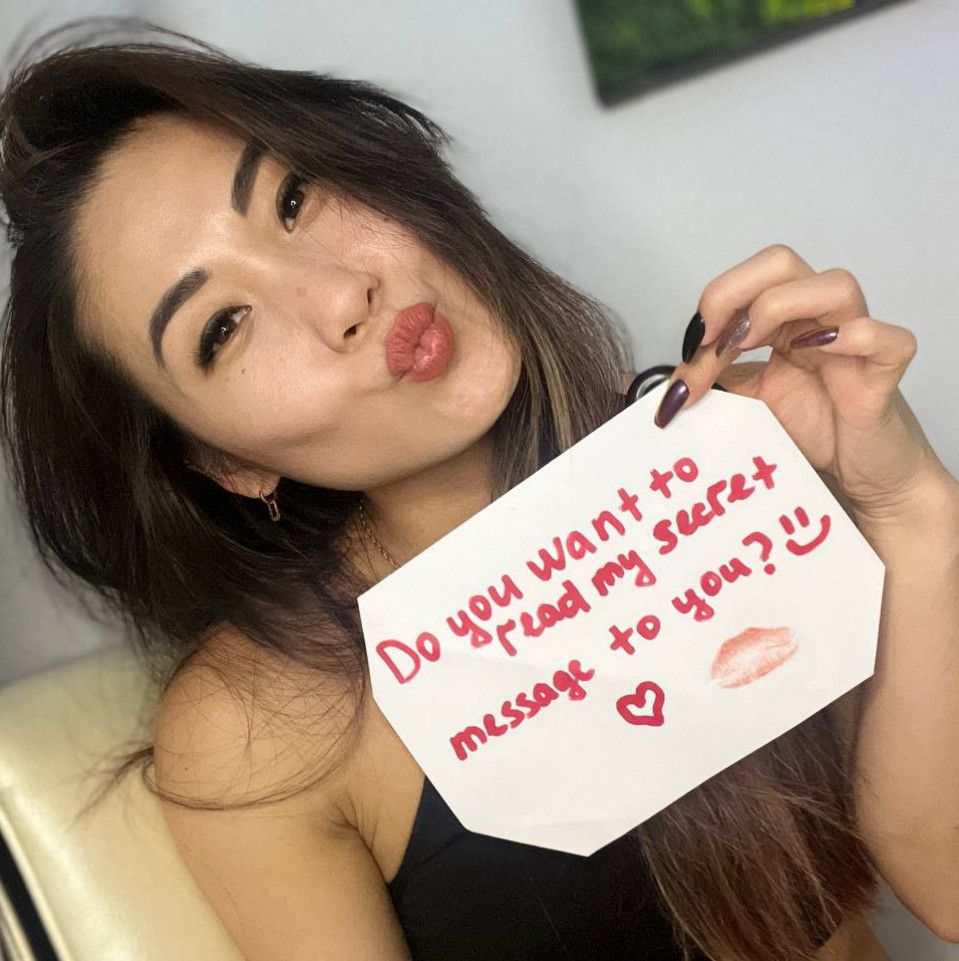 Do you want to
read my secret
message to you?